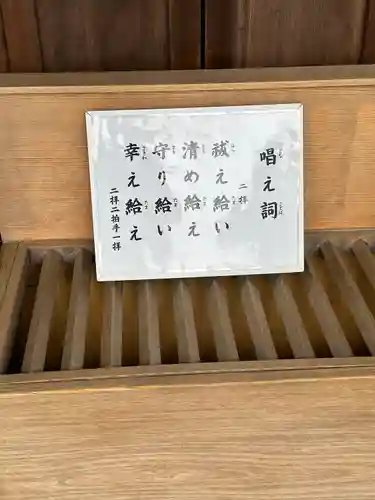 唱え詞
二拝
祓え給い
清め給え
守り給い
幸え給え
二拝二拍手一拝